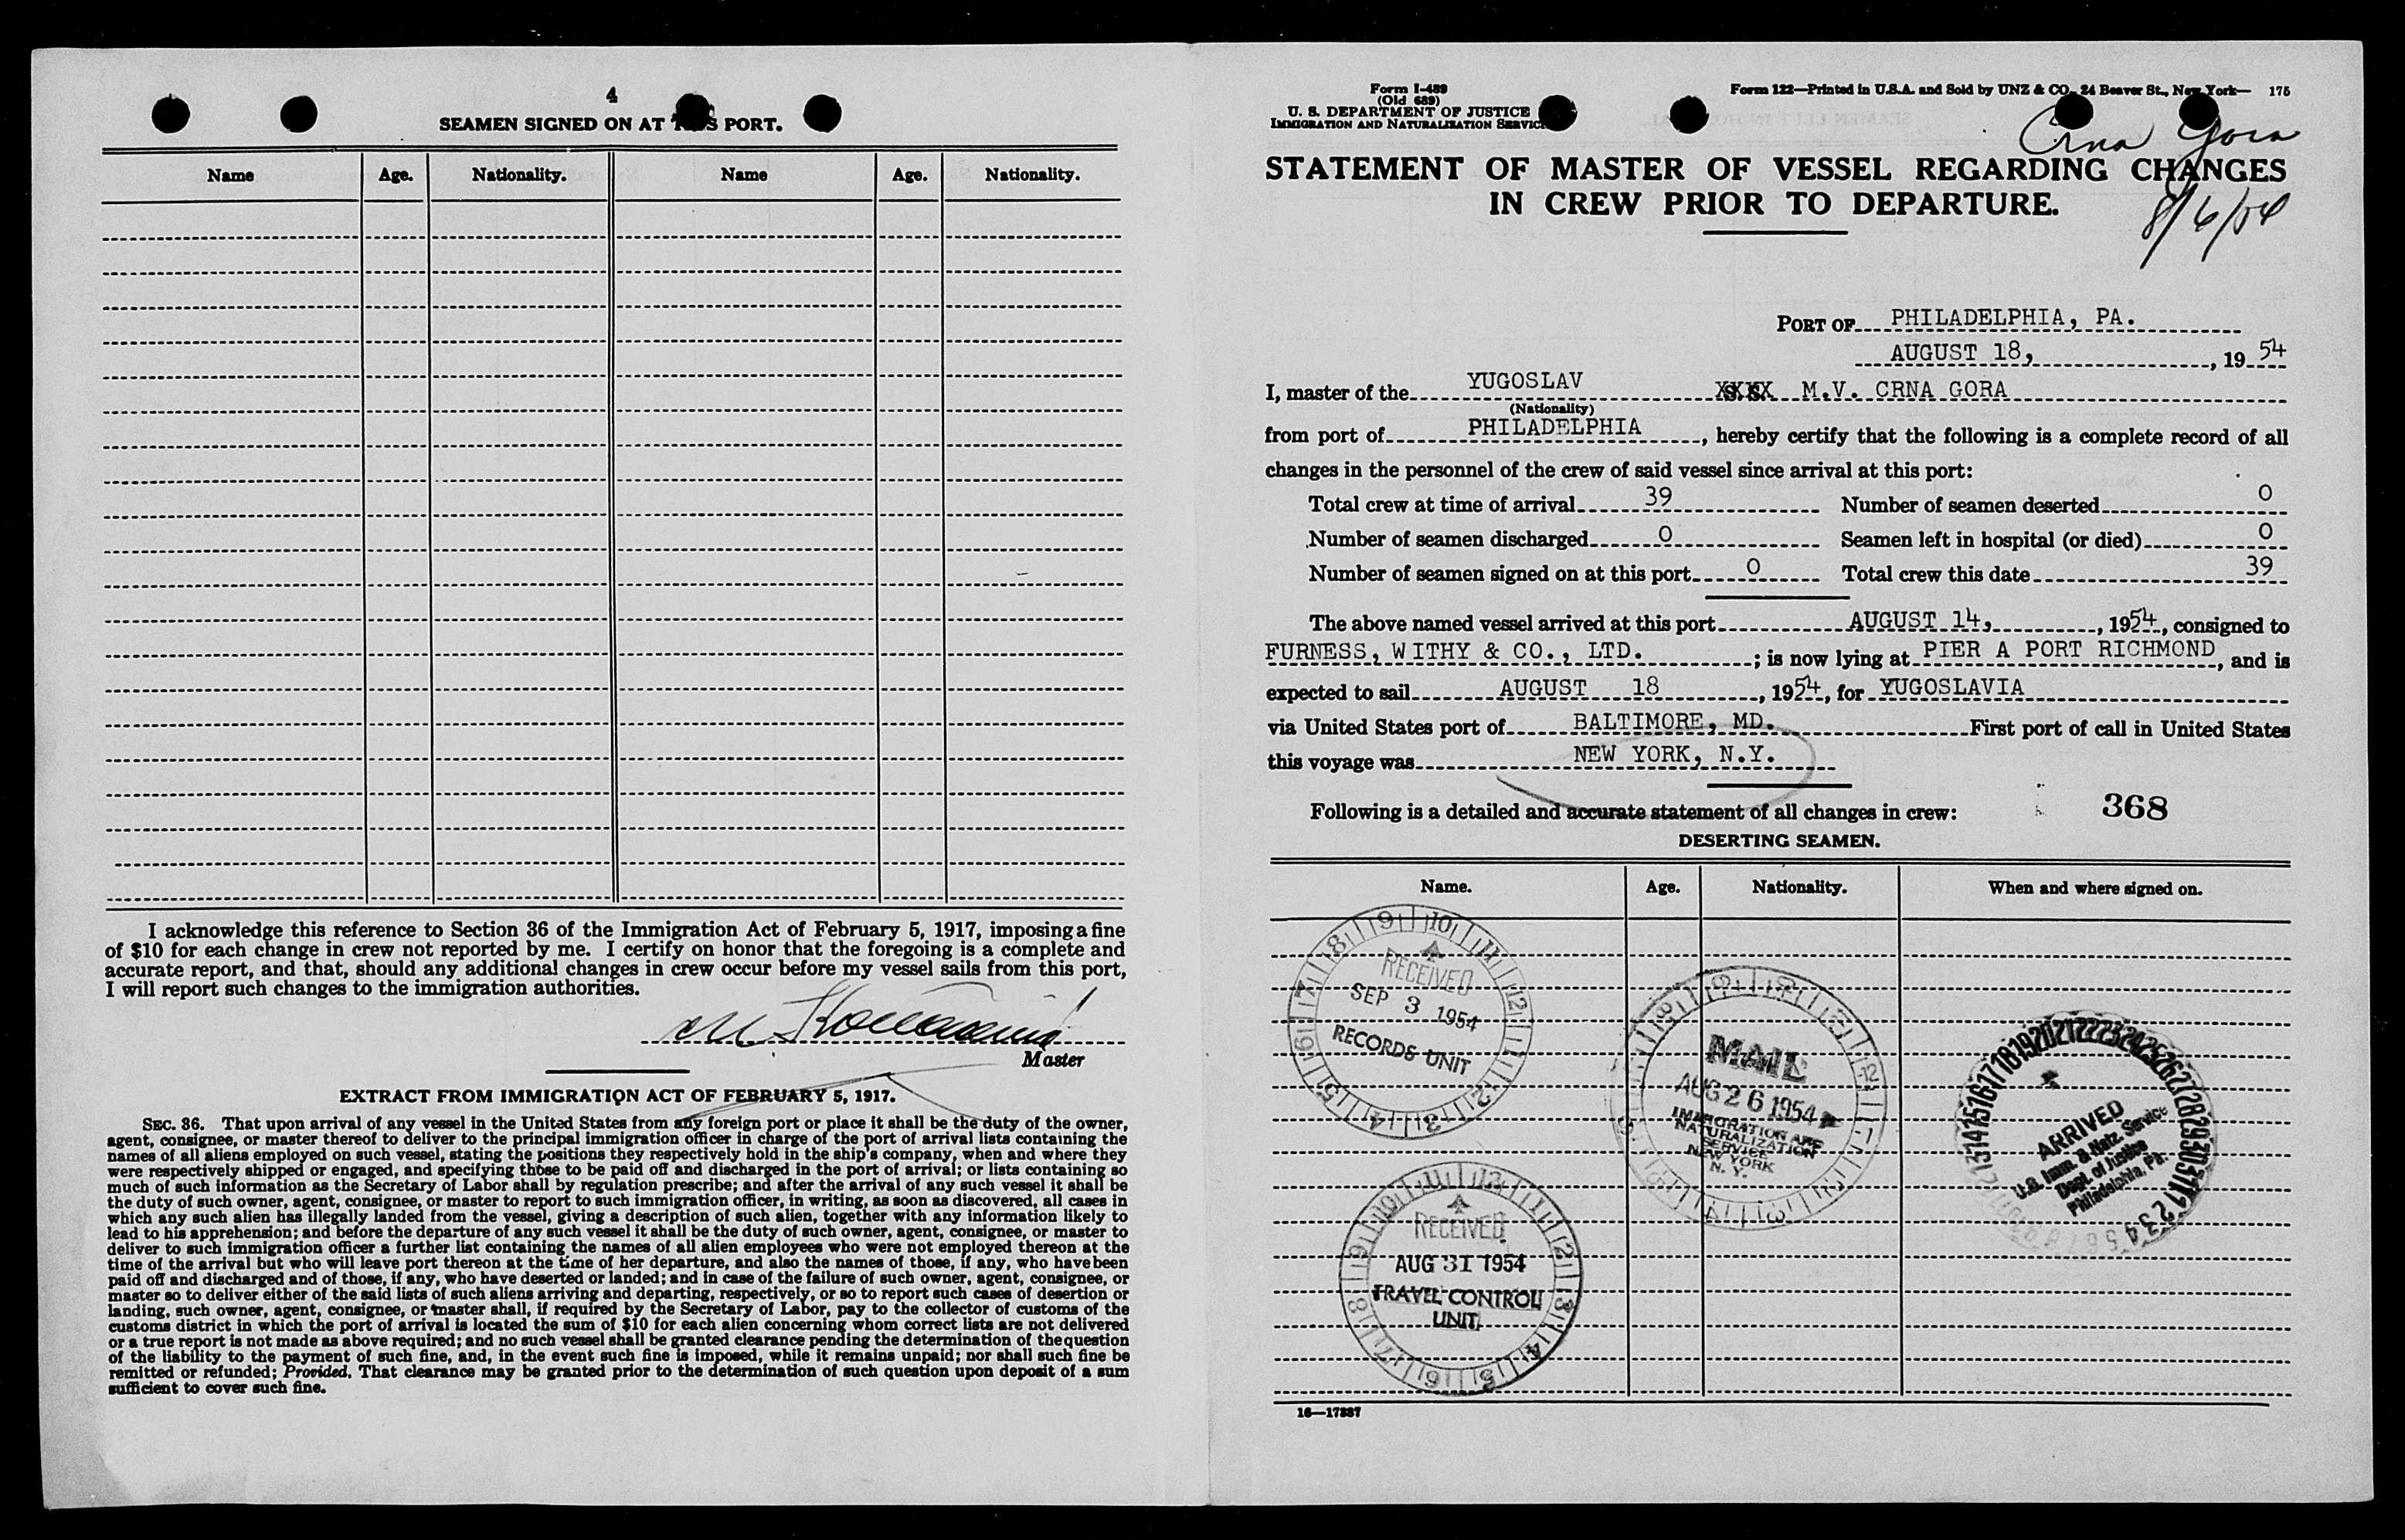 4
SEAMEN SIGNED ON AT THIS PORT.
Name Age. Nationality. Name Age. Nationality.
I acknowledge this reference to Section 36 of the Immigration Act of February 5, 1917, imposing a fine
of $10 for each change in crew not reported by me. I certify on honor that the foregoing is a complete and
accurate report, and that, should any additional changes in crew occur before my vessel sails from this port,
I will report such changes to the immigration authorities.
Master
EXTRACT FROM IMMIGRATION ACT OF FEBRUARY 5, 1917.
SEC. 36. That upon arrival of any vessel in the United States from any foreign port or place it shall be the duty of the owner,
agent, consignee, or master thereof to deliver to the principal immigration officer in charge of the port of arrival lists containing the
names of all aliens employed on such vessel, stating the positions they respectively hold in the ship's company, when and where they
were respectively shipped or engaged, and specifying those to be paid off and discharged in the port of arrival; or lists containing so
much of such information as the Secretary of Labor shall by regulation prescribe; and after the arrival of any such vessel it shall be
the duty of such owner, agent, consignee, or master to report to such immigration officer, in writing, as soon as discovered, all cases in
which any such alien has illegally landed from the vessel, giving a description of such alien, together with any information likely to
lead to his apprehension; and before the departure of any such vessel it shall be the duty of such owner, agent, consignee, or master to
deliver to such immigration officer a further list containing the names of all alien employees who were not employed thereon at the
time of the arrival but who will leave port thereon at the time of her departure, and also the names of those, if any, who have been
paid off and discharged and of those, if any, who have deserted or landed; and in case of the failure of such owner, agent, consignee, or
master so to deliver either of the said lists of such aliens arriving and departing, respectively, or so to report such cases of desertion or
landing, such owner, agent, consignee, or master shall, if required by the Secretary of Labor, pay to the collector of customs of the
customs district in which the port of arrival is located the sum of $10 for each alien concerning whom correct lists are not delivered
or a true report is not made as above required; and no such vessel shall be granted clearance pending the determination of the question
of the liability to the payment of such fine, and, in the event such fine is imposed, while it remains unpaid; nor shall such fine be
remitted or refunded; Provided, That clearance may be granted prior to the determination of such question upon deposit of a sum
sufficient to cover such fine.
Form I-489
(Old 689)
U. S. DEPARTMENT OF JUSTICE
IMMIGRATION AND NATURALIZATION SERVICE
Form 122—Printed in U.S.A. and Sold by UNZ & CO., 24 Beaver St., New York— 175
Crna Gora
STATEMENT OF MASTER OF VESSEL REGARDING CHANGES
IN CREW PRIOR TO DEPARTURE.
8/6/54
PORT OF PHILADELPHIA, PA.
AUGUST 18, , 19 54
I, master of the YUGOSLAV XXXX M.V. CRNA GORA
(Nationality)
from port of PHILADELPHIA , hereby certify that the following is a complete record of all
changes in the personnel of the crew of said vessel since arrival at this port:
Total crew at time of arrival 39 Number of seamen deserted 0
Number of seamen discharged 0 Seamen left in hospital (or died) 0
Number of seamen signed on at this port 0 Total crew this date 39
The above named vessel arrived at this port AUGUST 14, , 1954, consigned to
FURNESS, WITHY & CO., LTD. ; is now lying at PIER A PORT RICHMOND, and is
expected to sail AUGUST 18 , 1954, for YUGOSLAVIA
via United States port of BALTIMORE, MD. First port of call in United States
this voyage was NEW YORK, N.Y.
Following is a detailed and accurate statement of all changes in crew: 368
DESERTING SEAMEN.
Name. Age. Nationality. When and where signed on.
RECEIVED
SEP 3 1954
RECORDS UNIT
MAIL
AUG 26 1954
IMMIGRATION AND
NATURALIZATION
SERVICE
NEW YORK
N. Y.
ARRIVED
U.S. Imm. & Natz. Service
Dept. of Justice
Philadelphia, Pa.
RECEIVED
AUG 31 1954
TRAVEL CONTROL
UNIT
16—17887